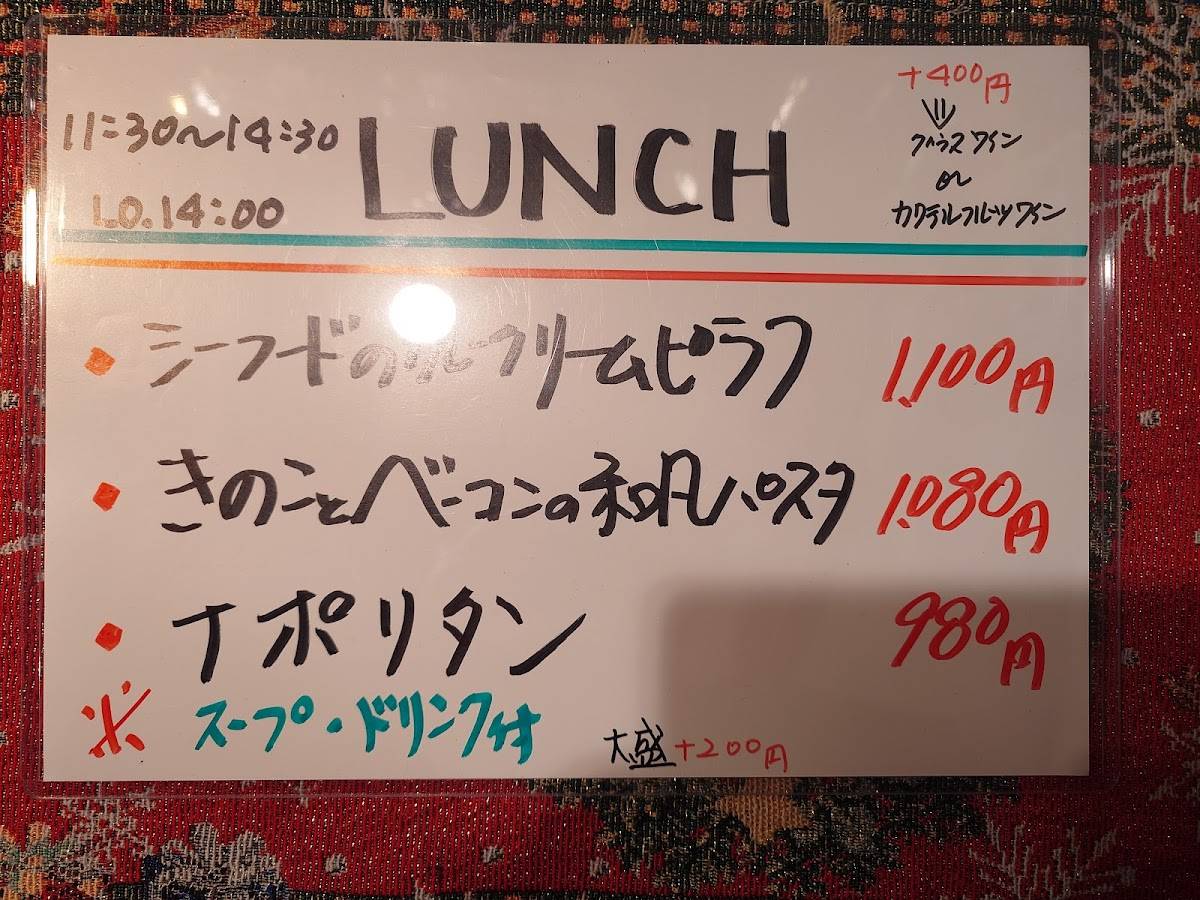 11:30〜14:30
L.O.14:00
LUNCH
+400円
グラスワイン
or
カクテルフルーツワイン
シーフードのカレークリームピラフ
1,100円
きのことベーコンの和風パスタ
1,080円
ナポリタン
980円
※ スープ・ドリンク付
大盛+200円